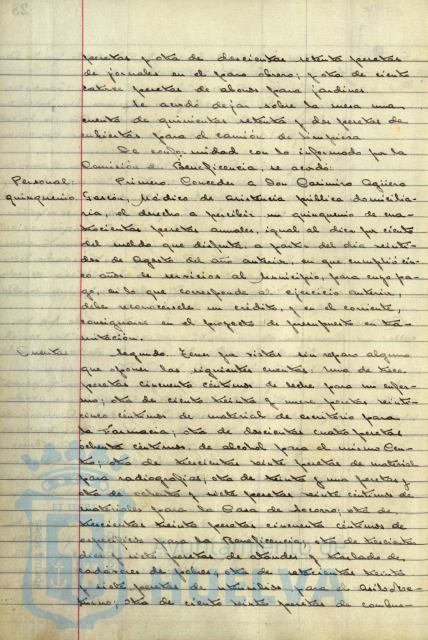 pesetas y otra de doscientas setenta pesetas
de jornales en el paro obrero; y otra de ciento
catorce pesetas de abonos para jardines.
Se acordó dejar sobre la mesa una
cuenta de quinientas setenta y dos pesetas de
cubiertas para el camión de limpieza
De conformidad con lo informado por la
Comisión de Beneficencia, se acordó:
Personal:
quinquenio.
Primero. Conceder a Don Casimiro Agüera
Garzón, Médico de asistencia pública domicilia-
ria, el derecho a percibir un quinquenio de cua-
trocientas pesetas anuales, igual al diez por ciento
del sueldo que disfruta, a partir del día veinti-
dós de Agosto del año anterior, en que cumplió cin-
co años de servicios al Municipio, para cuyo pa-
go, en lo que corresponde al ejercicio anterior,
debe reconocérsele un crédito, y en el corriente,
consignarse en el proyecto de presupuesto en tra-
mitación.
Cuentas
Segundo. Tener por vistas sin reparo alguno
que oponer las siguientes cuentas: una de trece
pesetas cincuenta céntimos de leche para un enfer-
mo; otra de ciento treinta y nueve pesetas veinti-
cinco céntimos de material de escritorio para
la Farmacia; otra de doscientas cuatro pesetas
ochenta céntimos de alcohol para el mismo Cen-
tro; otra de trescientas siete pesetas de material
para radiografías; otra de treinta y una pesetas y
otra de ochenta y siete pesetas veinte céntimos de
materiales para la Casa de Socorro; otra de
trescientas treinta pesetas cincuenta céntimos de
específicos para la Beneficencia; otra de trescientas
diez y siete pesetas de ataúdes y traslado de
cadáveres de pobres; otra de setecientas treinta
y siete pesetas de utensilios para el asilo noc-
turno; otra de ciento siete pesetas de combus-